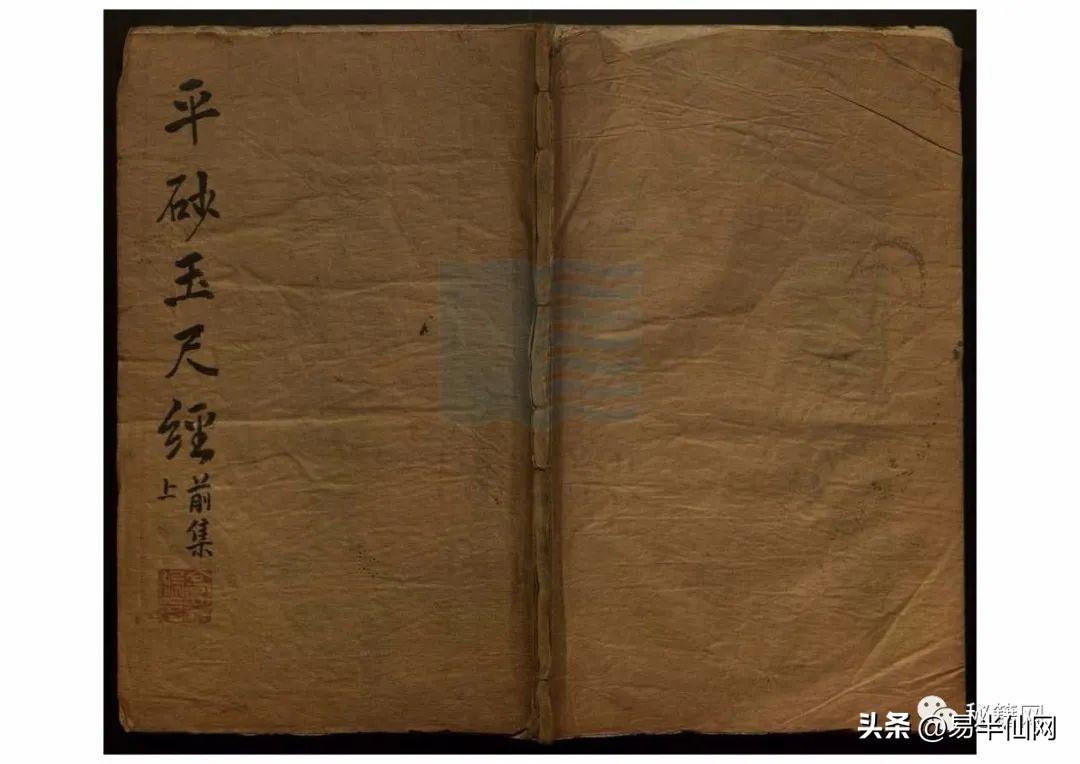 平砂玉尺經
前集
上
秘籍网
头条 @易半仙网